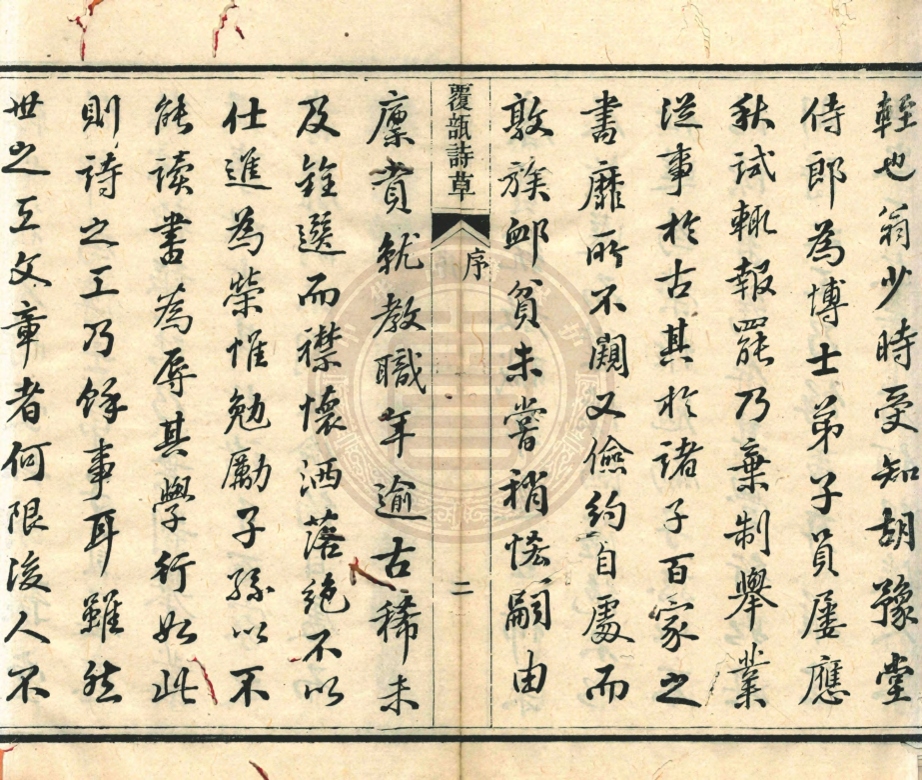 輕也翁少時受知胡豫堂
侍郎為博士弟子員屢應
秋試輒報罷乃棄制舉業
從事於古其於諸子百家之
書靡所不閱又儉約自處而
敦族卹貧未嘗稍恡嗣由
覆瓿詩草
序
二
廩貢就教職年逾古稀未
及銓選而襟懷洒落絕不以
仕進為榮惟勉勵子孫以不
能讀書為辱其學行如此
則詩之工乃餘事耳雖然
世之工文章者何限後人不